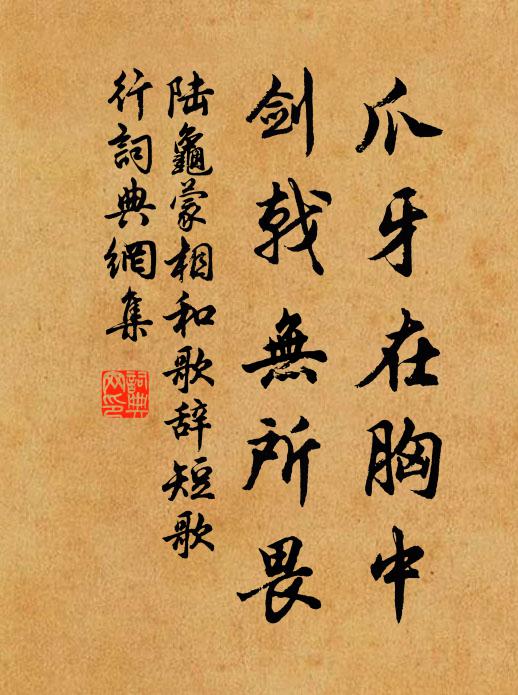 爪牙在胸中
剑戟無所畏
陆龜蒙相和歌辞短歌
行詞典網集
詞典
网印